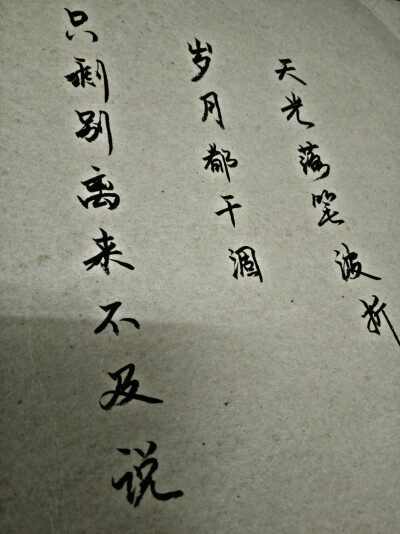 天光落笔波折
岁月都干涸
只剩别离来不及说